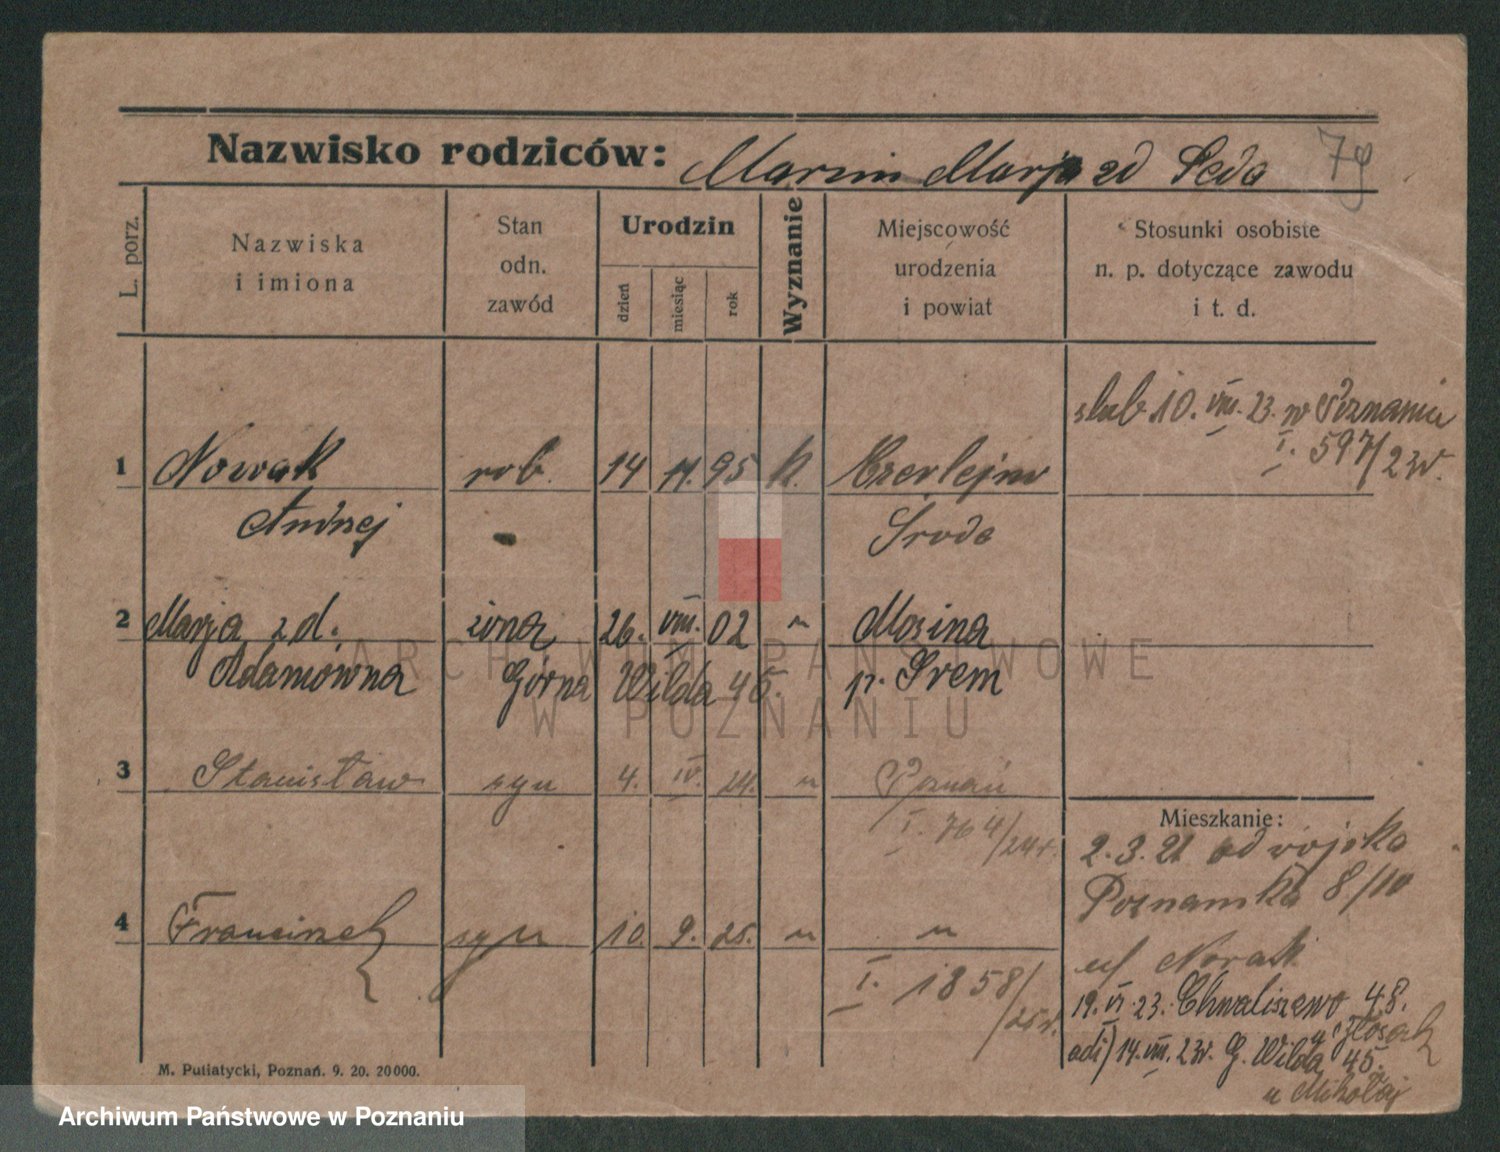 Nazwisko rodziców: Marcin Marja zd Seda
79
L. porz.
Nazwiska i imiona
Stan odn. zawód
Urodzin
dzień
miesiąc
rok
Wyznanie
Miejscowość urodzenia i powiat
Stosunki osobiste n. p. dotyczące zawodu i t. d.
ślub 10. VIII. 23. w Poznaniu
I. 597/23r.
1 Nowak rob. 14 11. 95 k. Czerlejno
Andrzej Środa
2 Marja zd. żona 26. VIII. 02 " Mosina
Adamówna Górna Wilda 45. p. Śrem
3 Stanisław syn 4. IV. 24. " Poznań
I. 764/24r.
Mieszkanie:
2.3.21 od wojska
Poznańska 8/10
4 Franciszek syn 10. 9. 25. " "
I. 1858/25r.
u/ Norak
19. VI. 23. Chwaliszewo 48.
adi) 14. VIII. 23r. G. Wilda 45.
u Mikołaj
M. Putiatycki, Poznań. 9. 20. 20000.
ARCHIWUM PAŃSTWOWE
W POZNANIU
Archiwum Państwowe w Poznaniu